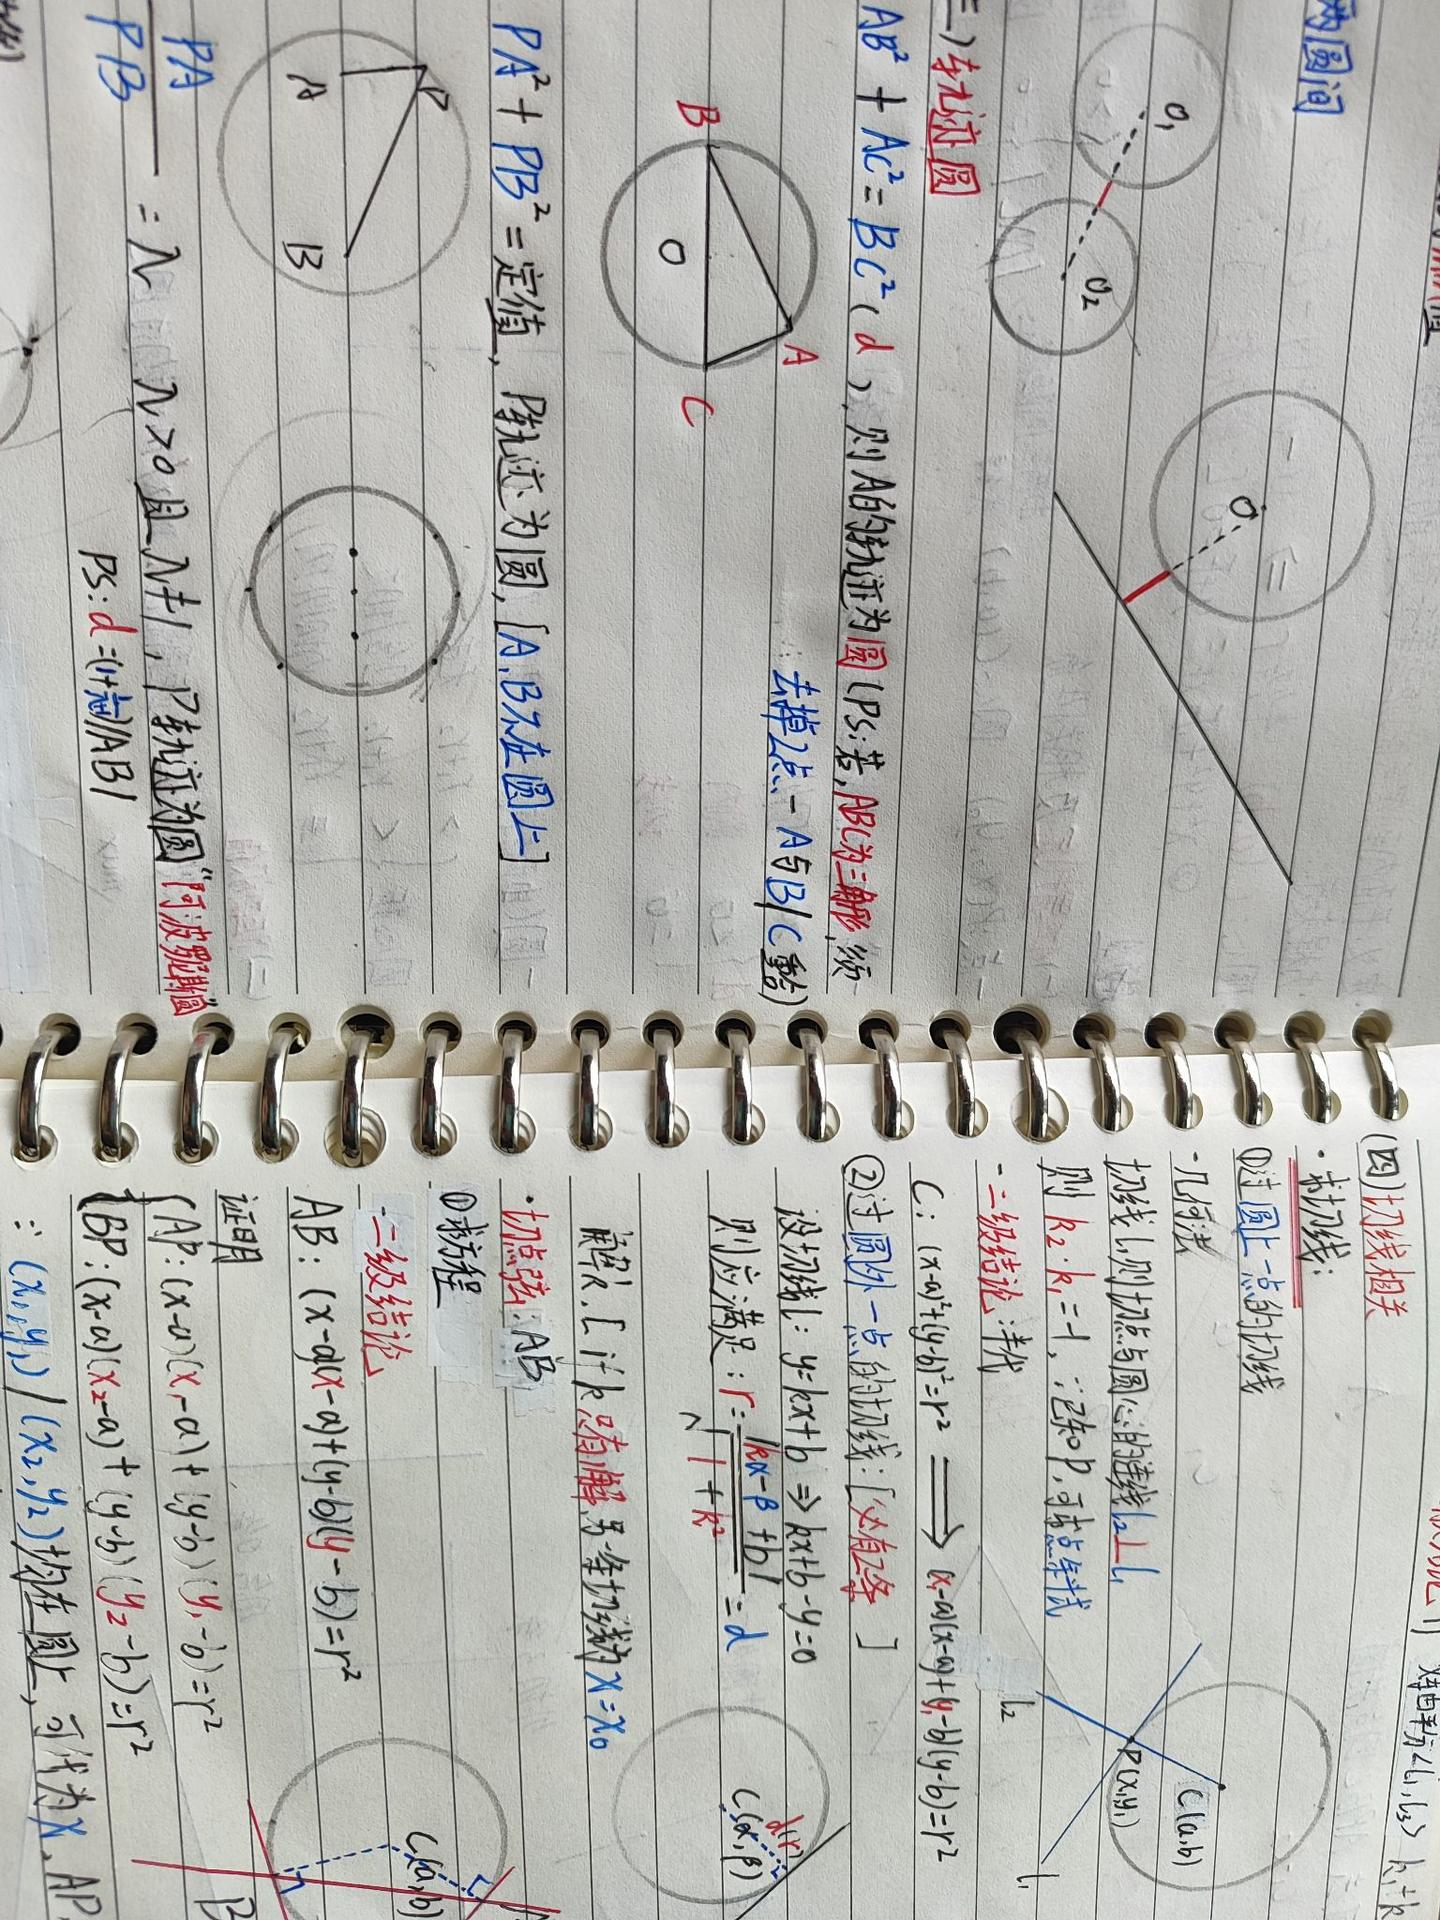 两圆间
O₁
O₂
O
三)轨迹圆
AB²+AC²=BC²(d),则A的轨迹为圆(PS:若,ABC为三角形,须
去掉2点-A与B/C重合)
B
A
O
C
PA²+PB²=定值,P轨迹为圆,[A,B不在圆上]
P
A
B
PA/PB=λ λ>0且λ≠1,P轨迹为圆"阿波罗斯圆"
PS:d=
|AB|
(四)切线相关
·求切线:
①过圆上一点的切线
-几何法
切线l,则切点与圆心的连线l₂⊥l₁
则k₂·k₁=-1,∵已知P,可求点斜式
-二级结论:半代
C:(x-a)²+(y-b)²=r² ⟹ (x₁-a)(x-a)+(y₁-b)(y-b)=r²
C(a,b)
P(x₁,y₁)
l₂
l₁
②过圆外一点的切线:[必有2条]
设切线l:y=kx+b⇒kx+b-y=0
则应满足:r=|kα-β+b|/√1+k²=d
解k.[if k只有1解,另一条切线为x=x₀
d(r)
C(α,β)
·切点弦:AB
①求方程
-二级结论
AB:(x-a)(x-a)+(y-b)(y-b)=r²
证明
{AP:(x-a)(x₁-a)+(y-b)(y₁-b)=r²
BP:(x-a)(x₂-a)+(y-b)(y₂-b)=r²
∵(x₁,y₁)/(x₂,y₂)均在圆上,可代为x,AP,
C(a,b)
B